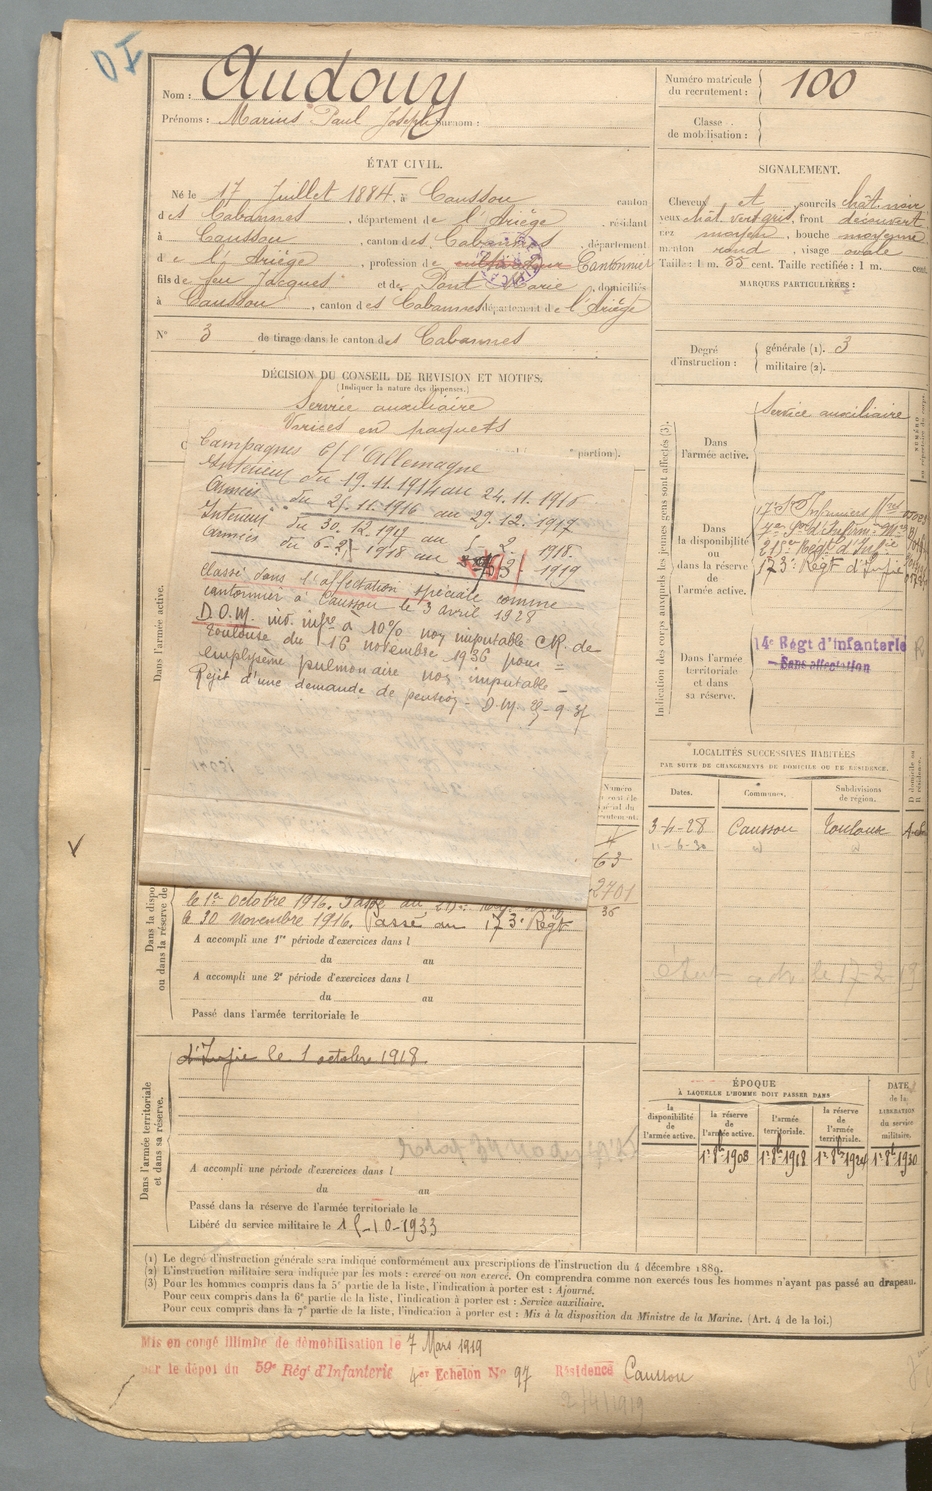 Nom : Audouy
Prénoms : Marius Paul Joseph surnom :
Numéro matricule du recrutement : 100
Classe de mobilisation :
ÉTAT CIVIL.
Né le 17 Juillet 1884, à Caussou canton
des Cabannes, département de l'Ariège, résidant
à Caussou, canton des Cabannes, département
de l'Ariège, profession de cultivateur Cantonnier
fils de feu Jacques et de Pont Marie, domiciliés
à Caussou, canton des Cabannes département de l'Ariège
N° 3 de tirage dans le canton des Cabannes
SIGNALEMENT.
Cheveux et sourcils chât. noir
yeux chât. vert gris, front découvert
nez moyen, bouche moyenne
menton rond, visage ovale
Taille : 1 m. 55 cent. Taille rectifiée : 1 m. cent.
MARQUES PARTICULIÈRES :
Degré d'instruction : générale (1). 3
militaire (2).
DÉCISION DU CONSEIL DE REVISION ET MOTIFS.
(Indiquer la nature des dispenses.)
Service auxiliaire
Varices en paquets
Campagnes C/ l'Allemagne
Intérieur du 19.11.1914 au 24.11.1916
Armées du 25.11.1916 au 29.12.1917
Intérieur du 30.12.1917 au 5 2 1918.
Armées du 6-2-1918 au 3-1919
Classé dans l'affectation spéciale comme
cantonnier à Caussou le 3 avril 1928
D.O.M. inv. infre à 10% non imputable CR. de
Toulouse du 16 novembre 1936 pour =
emphysème pulmonaire non imputable -
Rejet d'une demande de pension - D.M. -9-37
Indication des corps auxquels les jeunes gens sont affectés (3).
Dans l'armée active.
Service auxiliaire
Dans la disponibilité ou dans la réserve de l'armée active.
215e Régt d'Infie
173e Régt d'Infie
Dans l'armée territoriale et dans sa réserve.
14e Régt d'infanterie
Sans affectation
LOCALITÉS SUCCESSIVES HABITÉES
PAR SUITE DE CHANGEMENTS DE DOMICILE OU DE RÉSIDENCE.
Dates. Communes. Subdivisions de région. D domicile ou R résidence.
3-4-28 Caussou Toulouse
11-6-30
63
2701
36
Dans l'armée active.
le 1er octobre 1916. Passé au
le 30 novembre 1916. Passé au 173e Régt
A accompli une 1re période d'exercices dans l
du au
A accompli une 2e période d'exercices dans l
du au
Passé dans l'armée territoriale le
d'Infie le 1 octobre 1918
Dans l'armée territoriale et dans sa réserve.
A accompli une période d'exercices dans l
du au
Passé dans la réserve de l'armée territoriale le
Libéré du service militaire le 15-10-1933
ÉPOQUE
À LAQUELLE L'HOMME DOIT PASSER DANS
la disponibilité de l'armée active.
la réserve de l'armée active.
l'armée territoriale.
la réserve de l'armée territoriale.
DATE de la LIBÉRATION du service militaire.
1r 8bre 1908 1r 8bre 1918 1r 8bre 1924 1r 8bre 1930
(1) Le degré d'instruction générale sera indiqué conformément aux prescriptions de l'instruction du 4 décembre 1889.
(2) L'instruction militaire sera indiquée par les mots : exercé ou non exercé. On comprendra comme non exercés tous les hommes n'ayant pas passé au drapeau.
(3) Pour les hommes compris dans la 5e partie de la liste, l'indication à porter est : Ajourné.
Pour ceux compris dans la 6e partie de la liste, l'indication à porter est : Service auxiliaire.
Pour ceux compris dans la 7e partie de la liste, l'indication à porter est : Mis à la disposition du Ministre de la Marine. (Art. 4 de la loi.)
Mis en congé illimité de démobilisation le 7 Mars 1919
par le dépôt du 59e Régt d'Infanterie 4er Echelon No 97 Résidence Caussou
2/4/1919